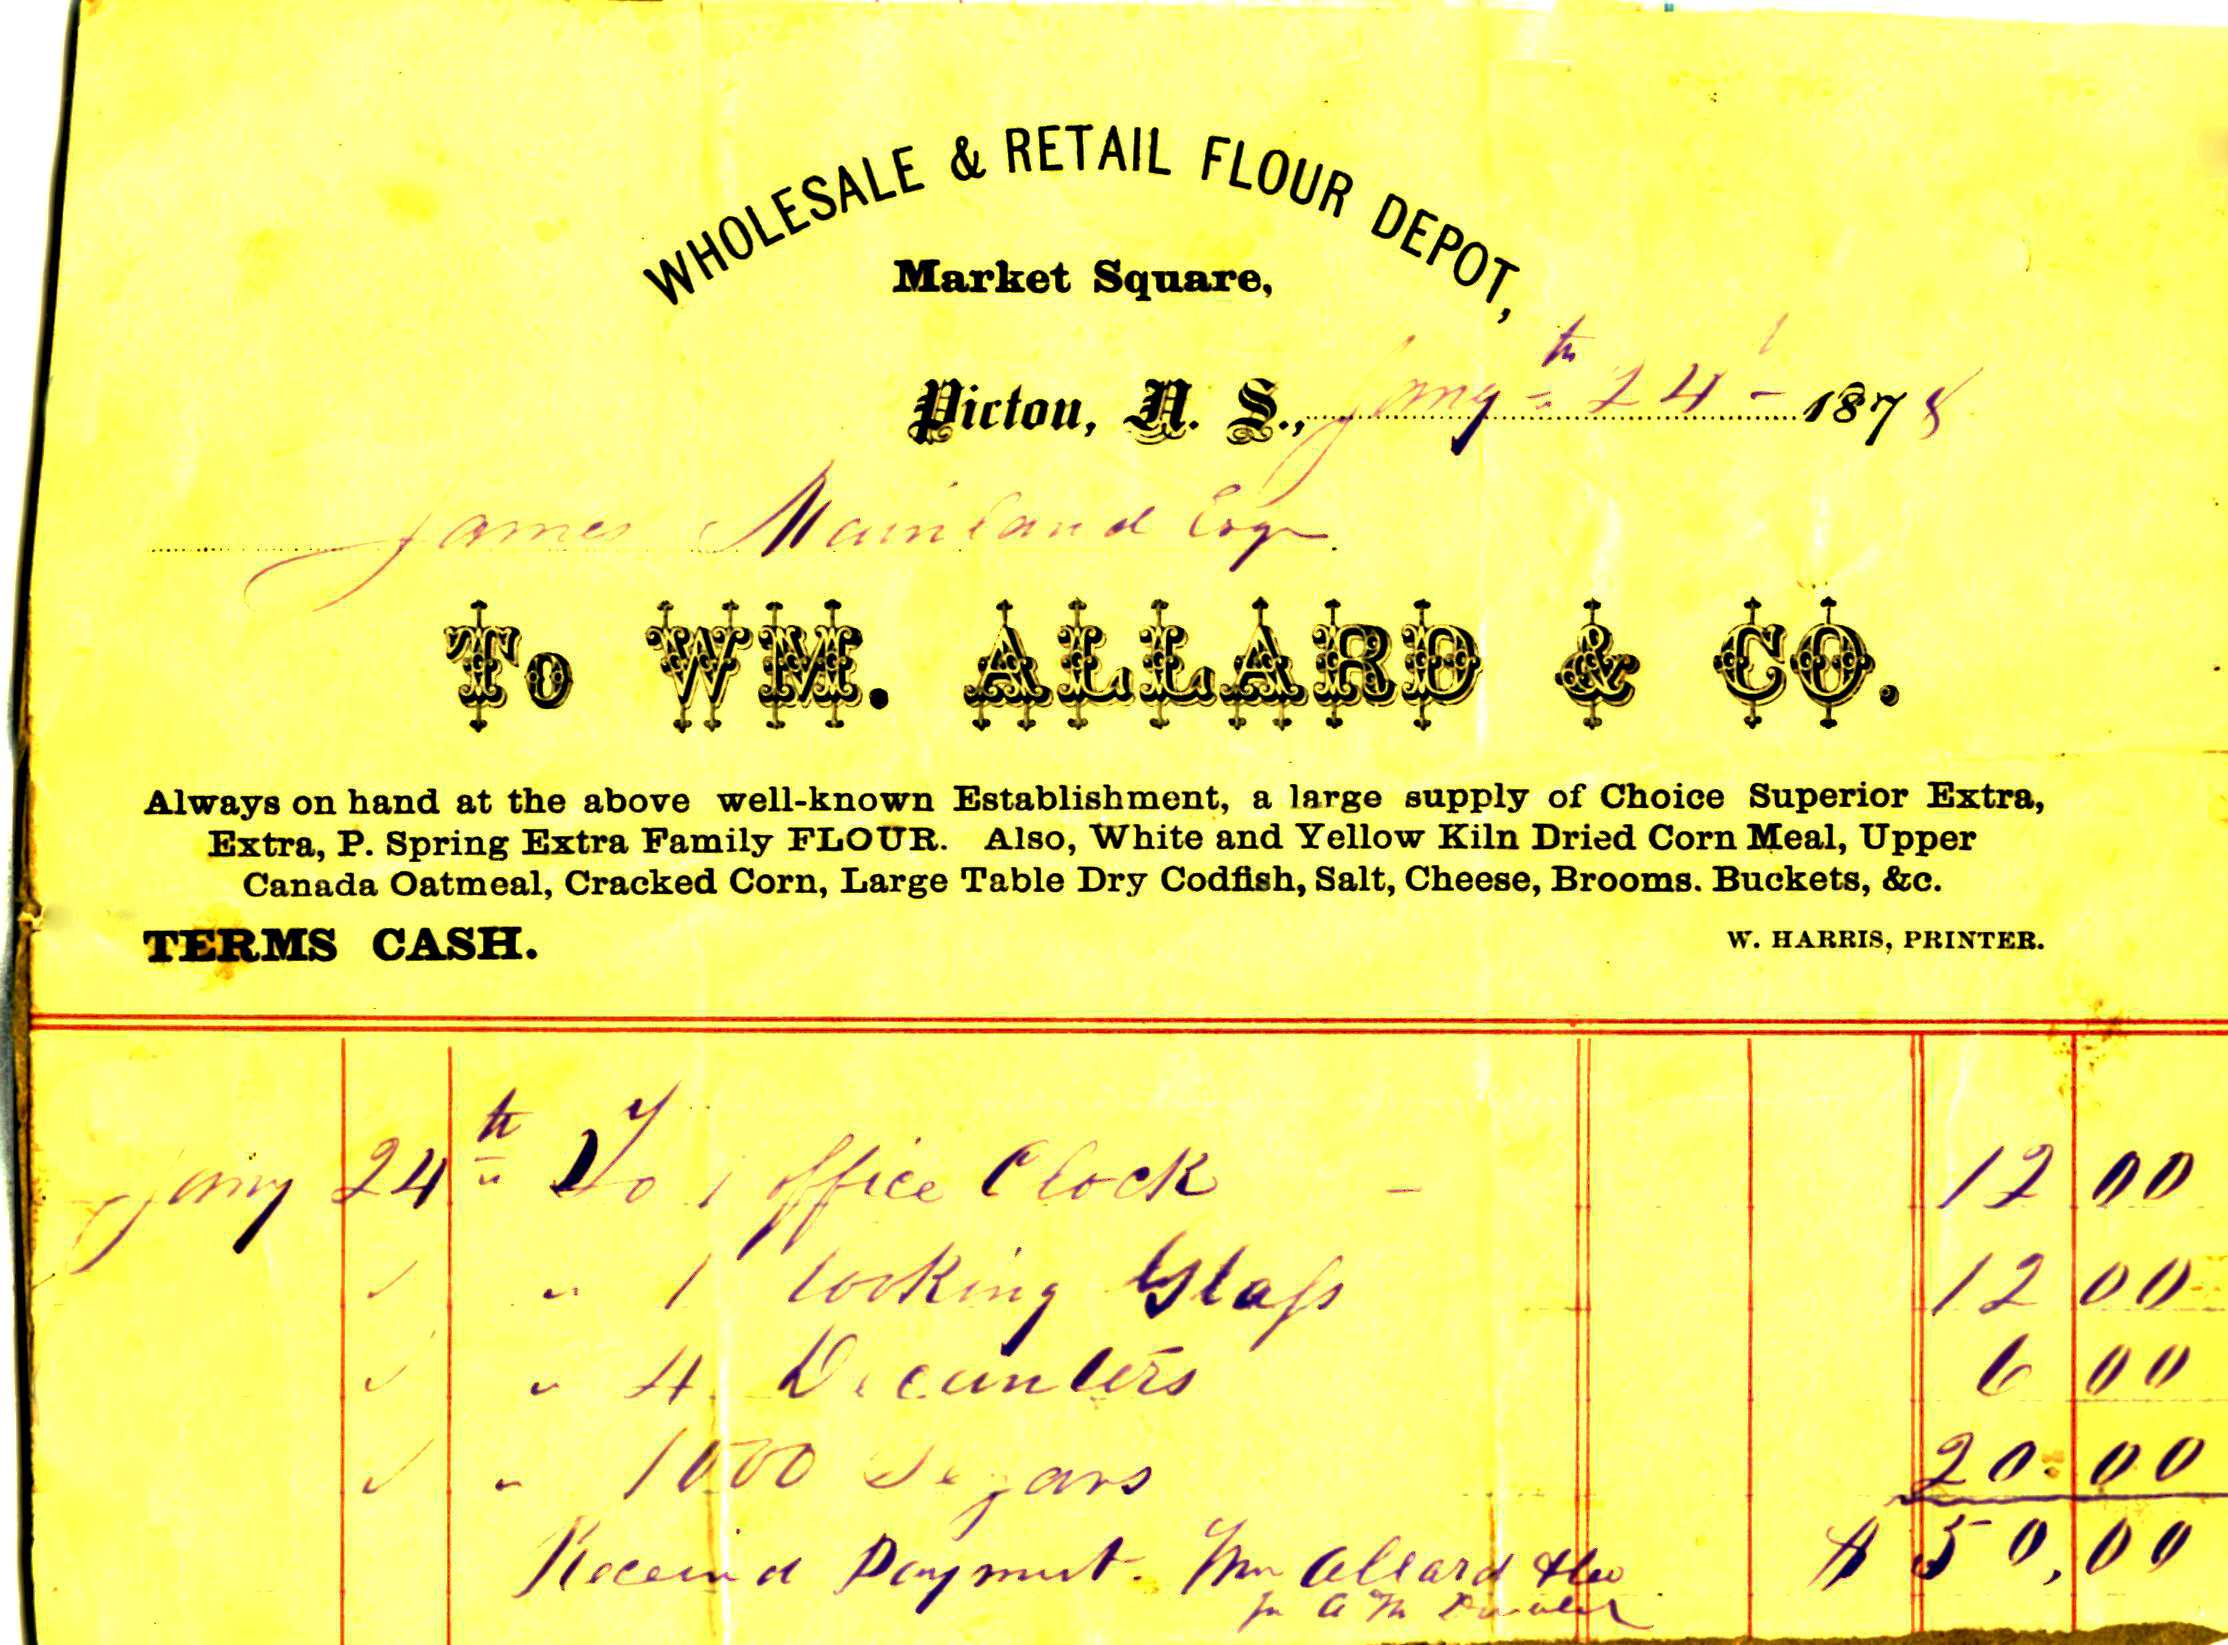 WHOLESALE & RETAIL FLOUR DEPOT,
Market Square,
Pictou, N. S., Jany 24th 1878
James Mainland Esqr
To WM. ALLARD & CO.
Always on hand at the above well-known Establishment, a large supply of Choice Superior Extra,
Extra, P. Spring Extra Family FLOUR. Also, White and Yellow Kiln Dried Corn Meal, Upper
Canada Oatmeal, Cracked Corn, Large Table Dry Codfish, Salt, Cheese, Brooms. Buckets, &c.
TERMS CASH. W. HARRIS, PRINTER.
Jany 24th To 1 Office Clock - 12 00
" " 1 Looking Glass 12 00
" " 4 Decanters 6 00
" " 1000 Segars 20.00
Received Payment. Wm Allard & Co $ 50,00
A M